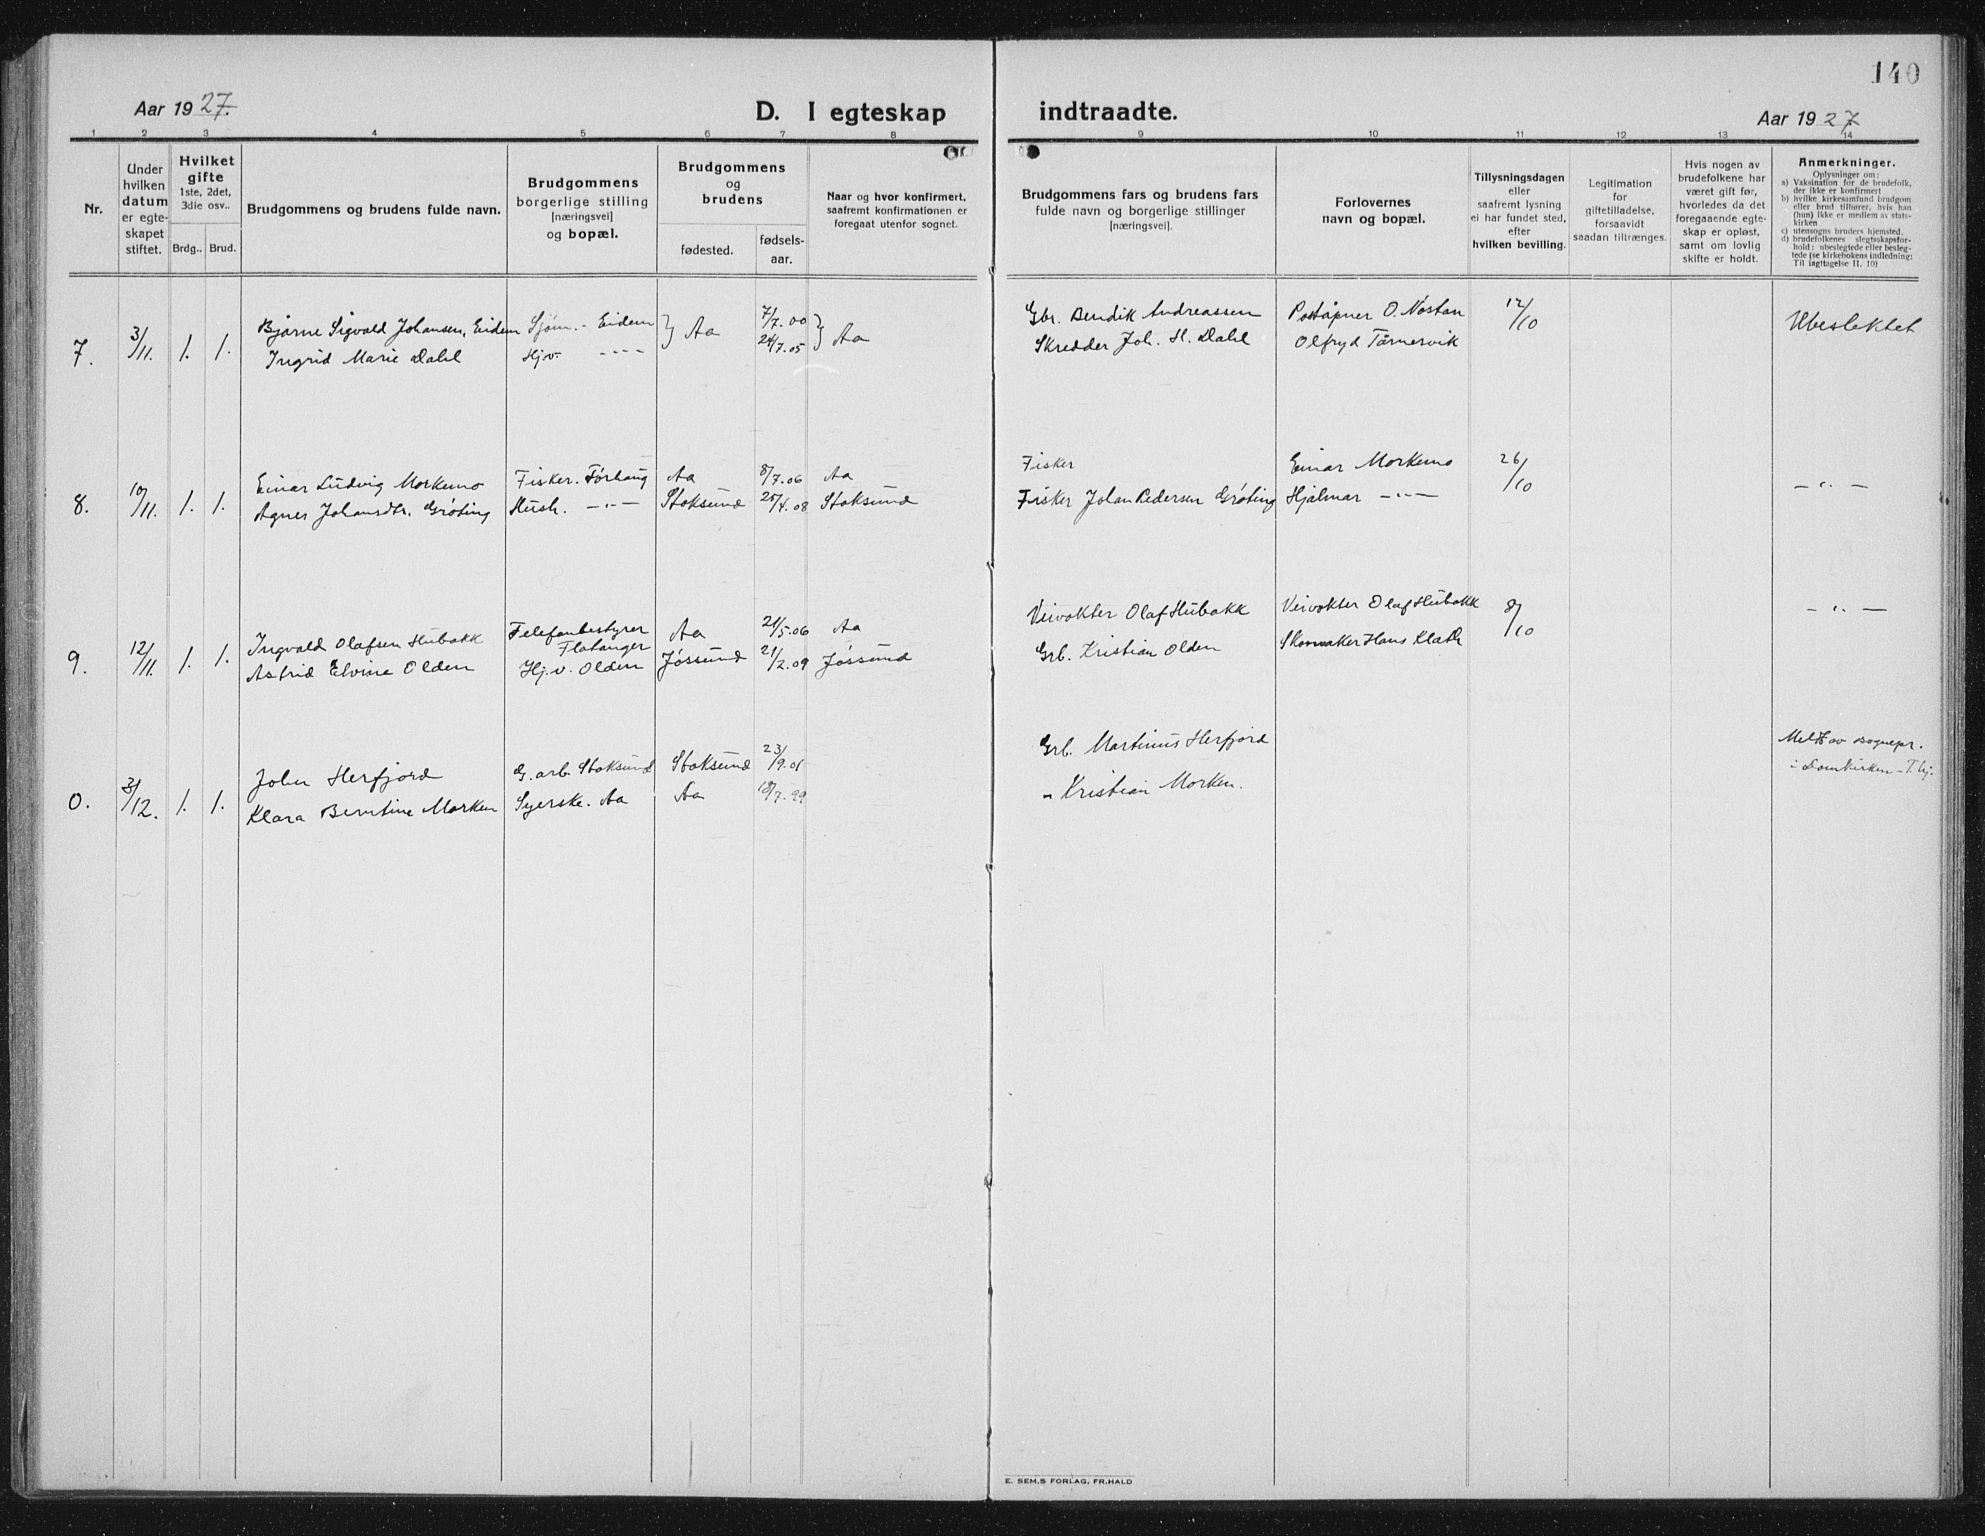 140
Aar 1927.
D. I egteskap
indtraadte.
Aar 1927
1 2 3 4 5 6 7 8
9 10 11 12 13 14
Nr.
Under hvilken datum er egte-skapet stiftet.
Hvilket gifte
1ste, 2det, 3die osv..
Brdg.. Brud.
Brudgommens og brudens fulde navn.
Brudgommens borgerlige stilling [næringsvei] og bopæl.
Brudgommens og brudens
fødested.
fødsels-aar.
Naar og hvor konfirmert, saafremt konfirmationen er foregaat utenfor sognet.
Brudgommens fars og brudens fars fulde navn og borgerlige stillinger [næringsvei].
Forlovernes navn og bopæl.
Tillysningsdagen eller saafremt lysning ei har fundet sted, efter hvilken bevilling.
Legitimation for giftetilladelse, forsaavidt saadan tiltrænges.
Hvis nogen av brudefolkene har været gift før, hvorledes da det foregaaende egte-skap er opløst, samt om lovlig skifte er holdt.
Anmerkninger.
Oplysninger om:
a) Vaksination for de brudefolk, der ikke er konfirmert
b) hvilke kirkesamfund brudgom eller brud tilhører, hvis han (hun) ikke er medlem av stats-kirken
c) utensogns bruders hjemsted.
d) brudefolkenes slegtsskapsfor-hold: ubeslegtede eller besleg-tede (se kirkebokens indledning: Til iagttagelse II. 10)
7. 3/11. 1. 1. Bjarne Sigvald Johansen, Eidem Sjøm. - Eidem } Aa 7/7.00 } Aa Gbr. Bendik Andreassen Poståpner O. Nøstan 12/10 Ubeslektet
Ingrid Marie Dahl Hjv. - - - - 24/7.05 Skredder Joh. H. Dahl Olfryd Tårnesvik
8. 10/11. 1. 1. Einar Ludvig Morkemo Fisker. Forhaug Aa 8/7.06 Aa Fisker Einar Morkemo 26/10 — " —
Agnes Johansdtr. Grøting Hush. — " — Stoksund 25/4.08 Stoksund Fisker Johan Pedersen Grøting Hjalmar — " —
9. 12/11. 1. 1. Ingvald Olafsen Hubakk Telefonbestyrer Flatanger Aa 21/5.06 Aa Veivokter Olaf Hubakk Veivokter Olaf Hubakk 8/10 — " —
Astrid Elvine Olden Hj.v. Olden Jøssund 21/2.09 Jøssund Grb. Kristian Olden Skomaker Hans Kleth
0. 3/12. 1. 1. John Herfjord G. arb. Stoksund Stoksund 23/9.01 Grb. Martinus Herfjord Meldt av sognepr.
i Domkirken - T.hj.
Klara Berntine Morken Syerske. Aa Aa 18/7.99 " Kristian Morken.
E. SEM,S FORLAG, FR.HALD